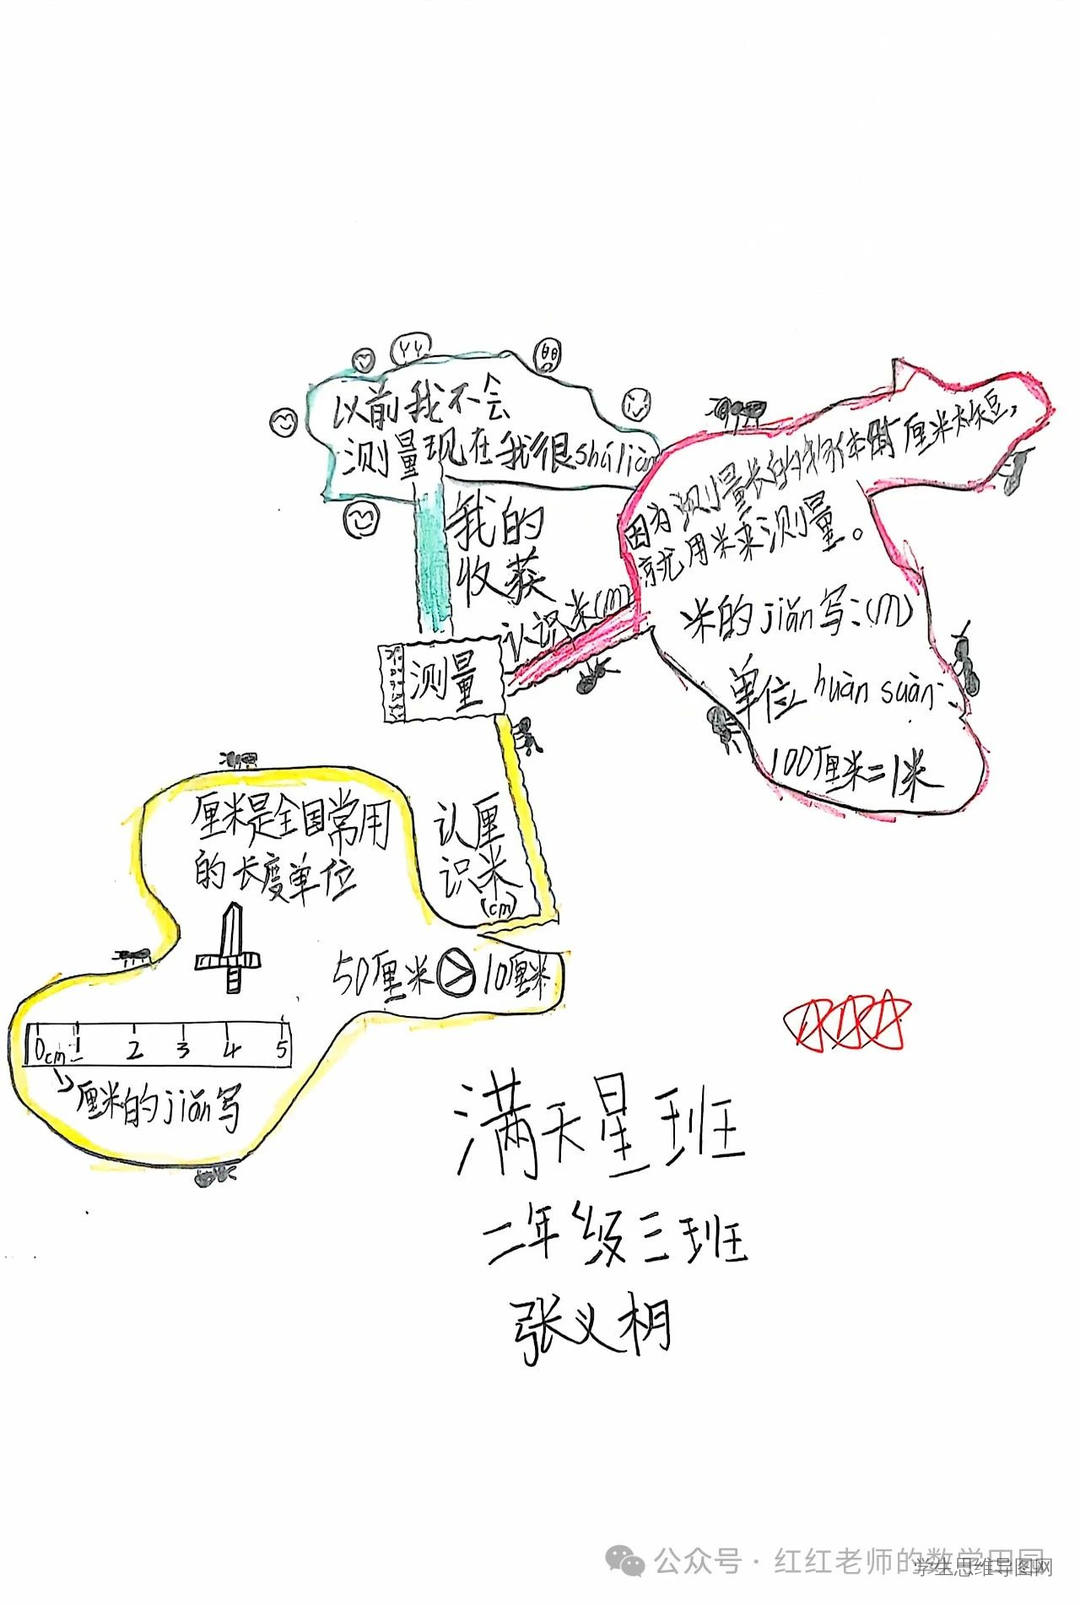 以前我不会
测量现在我很shúliàn
我的
收获
因为测量长的物体时厘米太短,
就用米来测量。
认识米(m)
米的jiǎn写:(m)
单位huàn suàn:
100厘米=1米
测量
认识厘米
(cm)
厘米是全国常用
的长度单位
50厘米>10厘米
0cm 1 2 3 4 5
厘米的jiǎn写
满天星班
二年级三班
张义枬
公众号·红红老师的数学田园
学生思维导图网